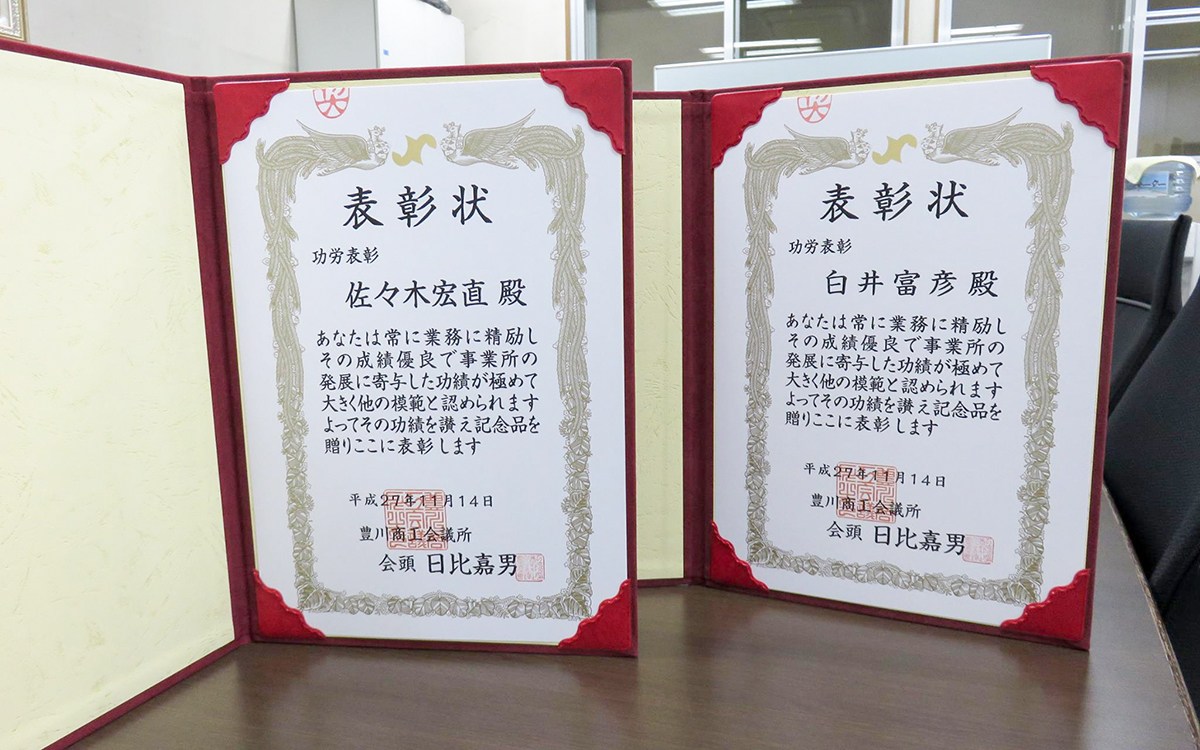 表彰状
功労表彰
佐々木宏直 殿
あなたは常に業務に精励し
その成績優良で事業所の
発展に寄与した功績が極めて
大きく他の模範と認められます
よってその功績を讃え記念品を
贈りここに表彰します
平成27年11月14日
豊川商工会議所
会頭 日比嘉男
表彰状
功労表彰
白井富彦 殿
あなたは常に業務に精励し
その成績優良で事業所の
発展に寄与した功績が極めて
大きく他の模範と認められます
よってその功績を讃え記念品を
贈りここに表彰します
平成27年11月14日
豊川商工会議所
会頭 日比嘉男